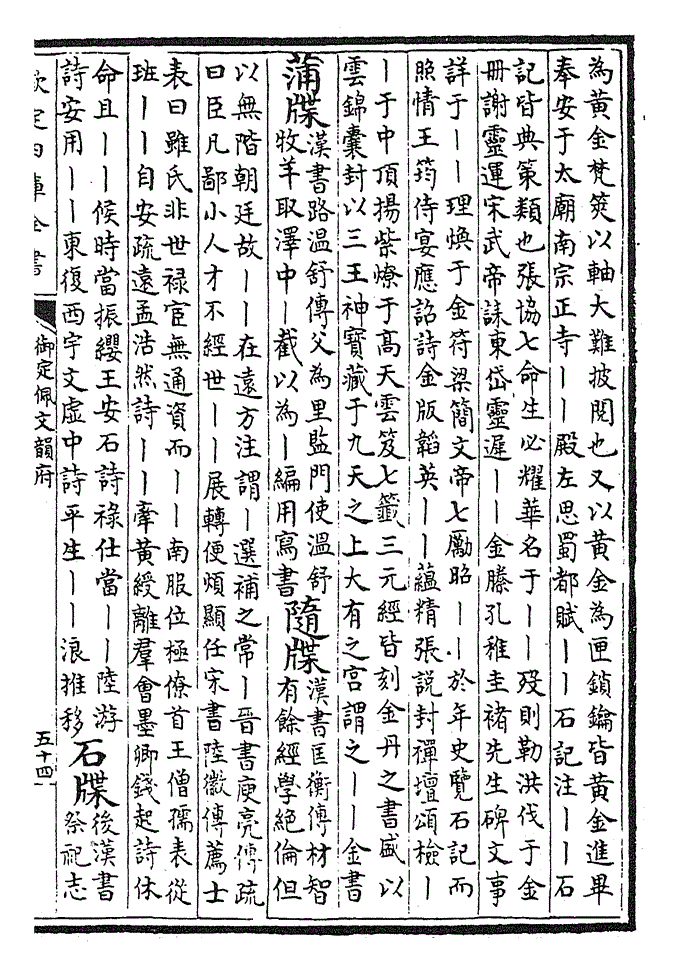 為黃金梵筴以軸大難披閱也又以黃金為匣鎖鑰皆黃金進畢
奉安于太廟南宗正寺丨丨殿左思蜀都賦丨丨石記注丨丨石
記皆典策類也張協七命生必耀華名于丨丨歿則勒洪伐于金
冊謝靈運宋武帝誄東岱靈遲丨丨金縢孔稚圭褚先生碑文事
詳于丨丨理煥于金符梁簡文帝七勵昭丨丨於年史覽石記而
照情王筠侍宴應詔詩金版韜英丨丨蘊精張説封禪壇頌檢丨
丨于中頂揚柴燎于高天雲笈七籤三元經皆刻金丹之書盛以
雲錦囊封以三王神寶藏于九天之上大有之宮謂之丨丨金書
蒲牒漢書路溫舒傳父為里監門使溫舒
牧羊取澤中丨截以為丨編用寫書
隨牒漢書匡衡傳材智
有餘經學絕倫但
以無階朝廷故丨丨在遠方注謂丨選補之常丨晉書庾亮傳疏
曰臣凡鄙小人才不經世丨丨展轉便煩顯任宋書陸徽傳薦士
表曰雖氏非世祿宦無通資而丨丨南服位極僚首王僧孺表從
班丨丨自安疏遠孟浩然詩丨丨牽黃綬離羣會墨卿錢起詩休
命且丨丨候時當振纓王安石詩祿仕當丨丨陸游
詩安用丨丨東復西宇文虛中詩平生丨丨浪推移
石牒後漢書
祭祀志
欽定四庫全書
御定佩文韻府
五十四